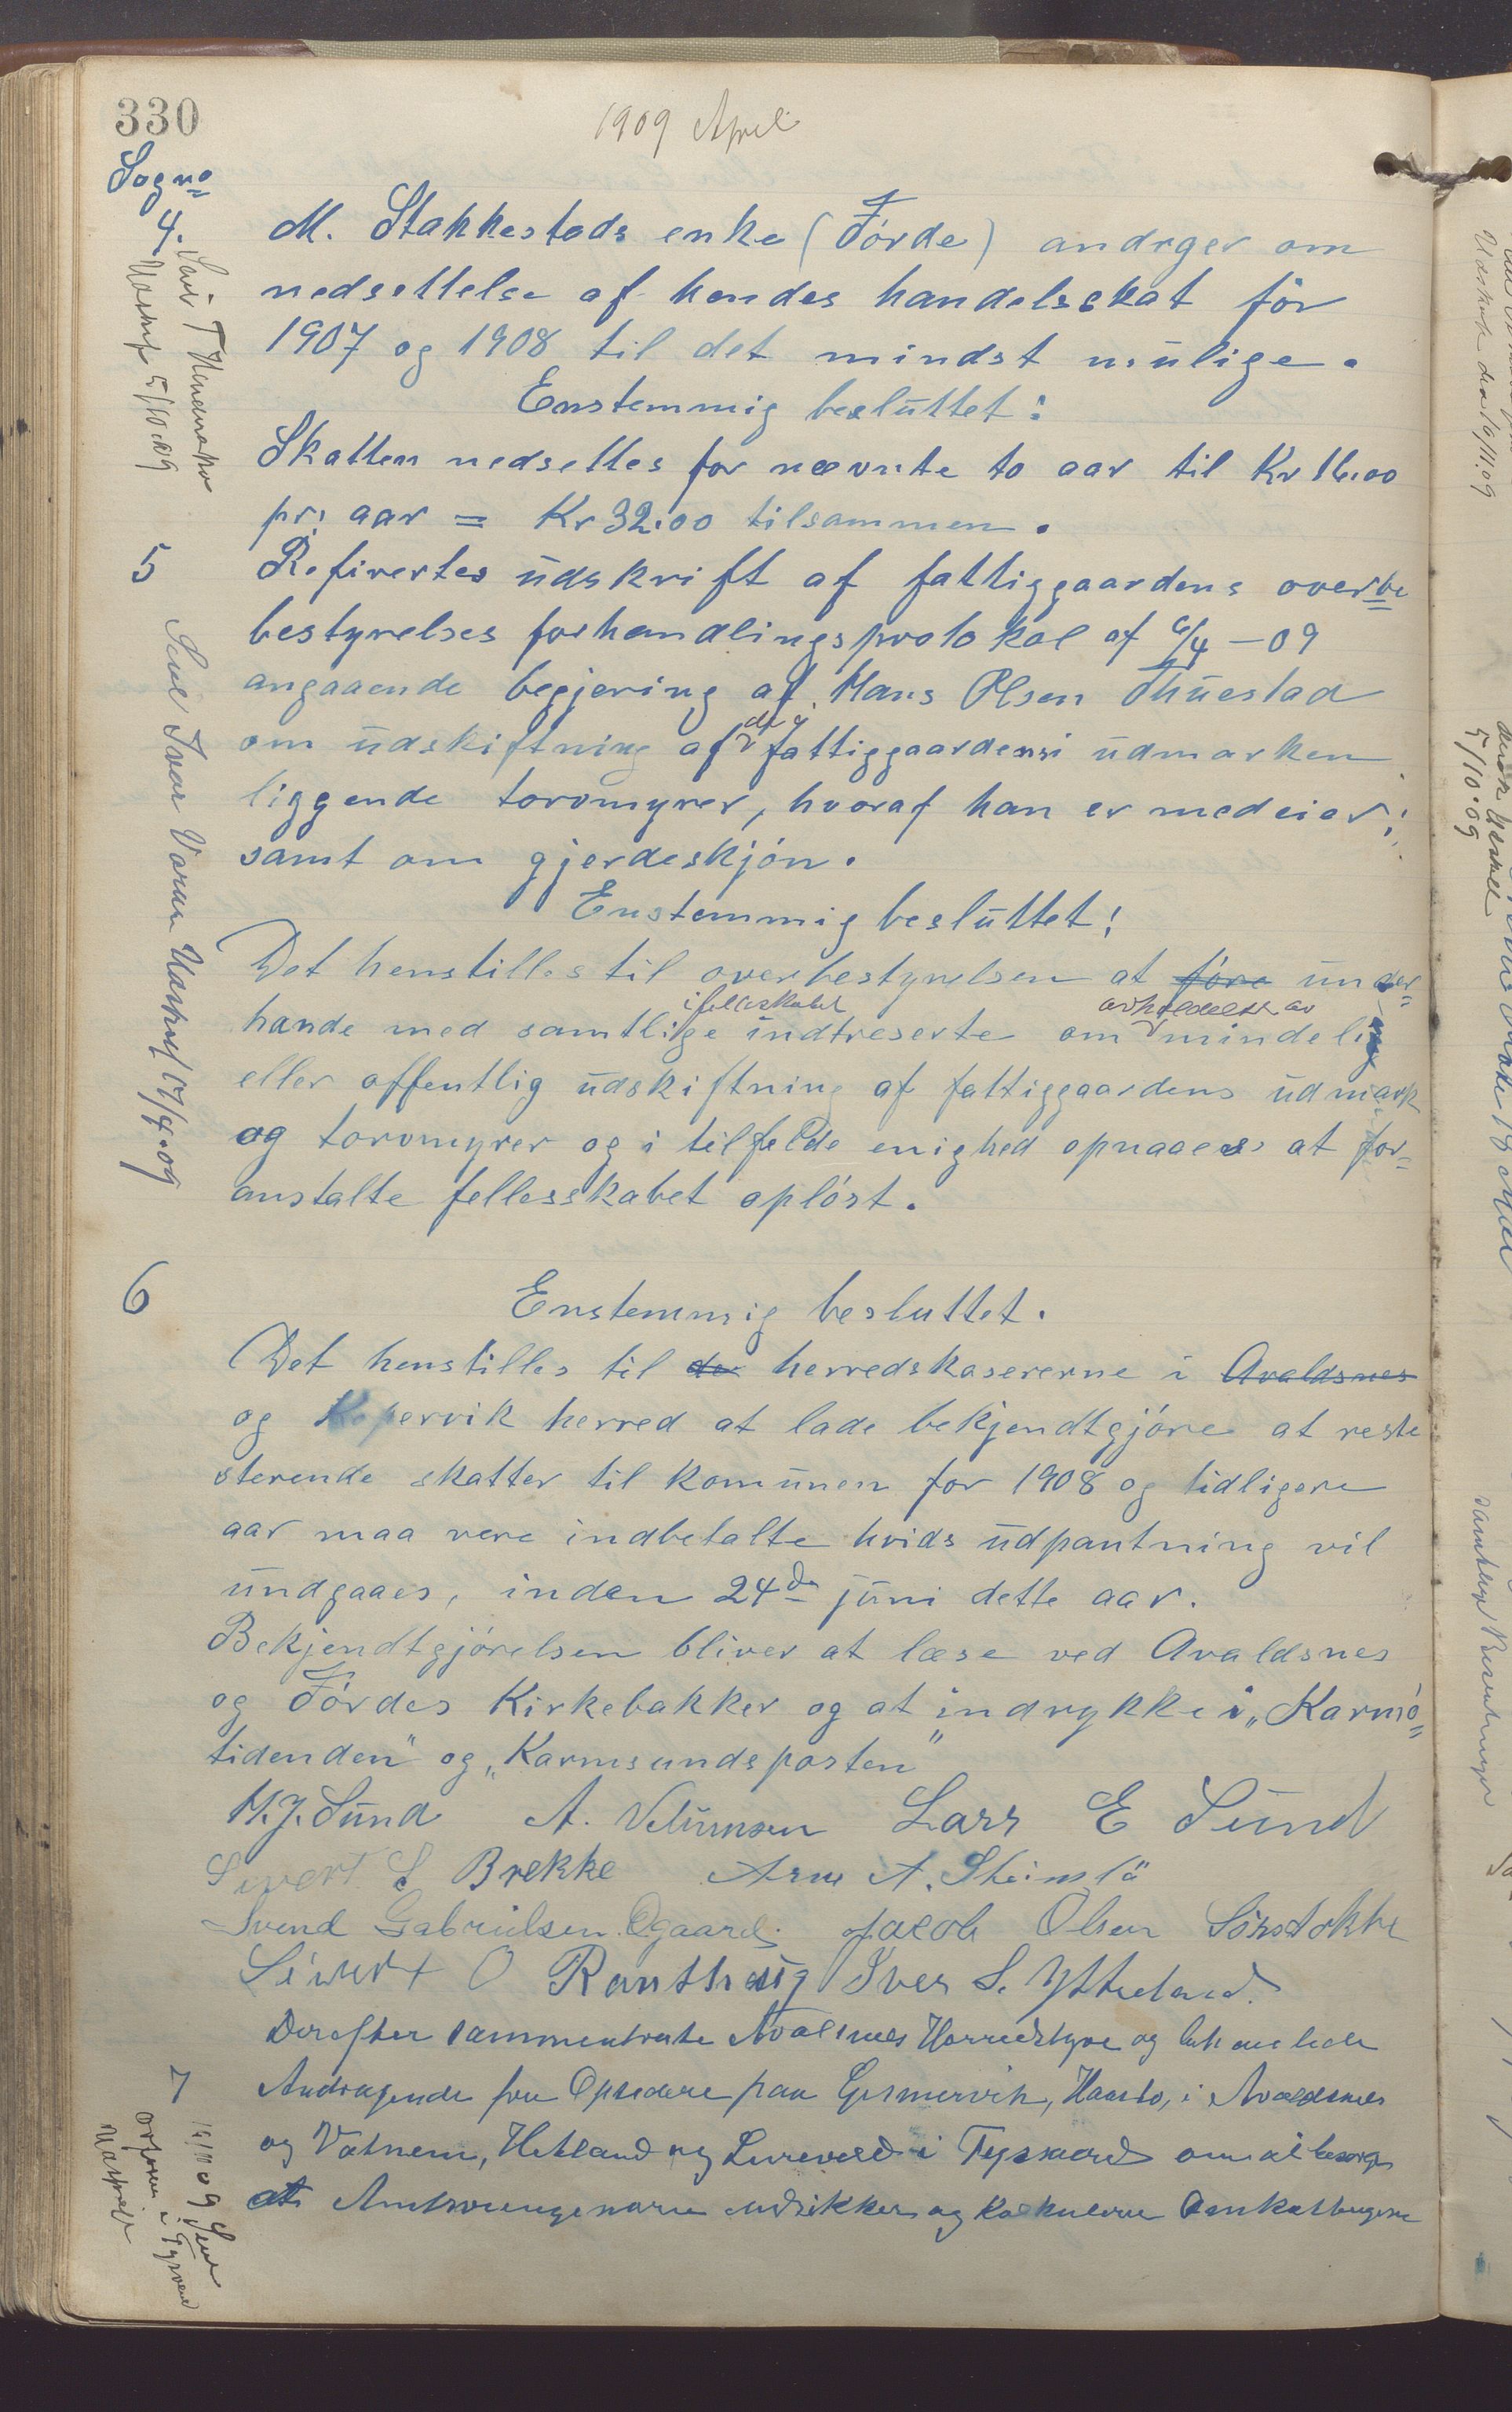 330
1909 April
Sogne
4.
M. Stakkestads enke (Förde) andrger om
nedsettelse af hendes handelsskat för
1907 og 1908 til det mindst mulige.
Enstemmig besluttet:
Skatten nedsettes for nævnte to aar til Kr 16.00
pr. aar = Kr 32.00 tilsammen.
5
Refirertes udskrift af fattiggaardens overbe
bestyrelses forhandlingsprotokol af 6/4 – 09
angaaende begjering af Hans Olsen Thuestad
om udskiftning af de i fattiggaardens udmarken
liggende torvmyrer, hvoraf han er medeier;
samt om gjerdeskjön.
Enstemmig besluttet:
Det henstilles til overbestyrelsen at före under=
hande med samtlige i felleskabet indtreserte om avholdelse av mindelig
eller offentlig udskiftning af fattiggaardens udmark
og torvmyrer og i tilfelde enighed opnaaes at for=
anstalte fellesskabet oplöst.
Send Ivar Varne Uaskrif 17/4.09
6
Enstemmig besluttet.
Det henstilles til de herredskasererne i Avaldsnes
og Kopervik herred at lade bekjendtgjöre at reste
sterende skatter til komunen for 1908 og tidligere
aar maa vere indbetalte hvids udpantning vil
undgaaes, inden 24de juni dette aar.
Bekjendtgjörelsen bliver at læse ved Avaldsnes
og Fördes Kirkebakker og at indrykke i „Karmö=
tidenden" og „Karmsundsposten"
H. J. Sund A. Velumsen Lars E Sund
Sivert S Brekke Arne A. Steinslö
Svend Gabrielsen Ögaard. Jacob Olsen Sörstokke
Sivert O Ranthaug Iver S. Ytreland.
Derefter sammentraate Avalsnes Herredstyre og
7
Andragende fra Opsidere paa Gismervik, Haasto, i Avaldsnes
og Vatnem, Hetland og i Tysvær om at besørge
at og
5/10.09
19/11.09